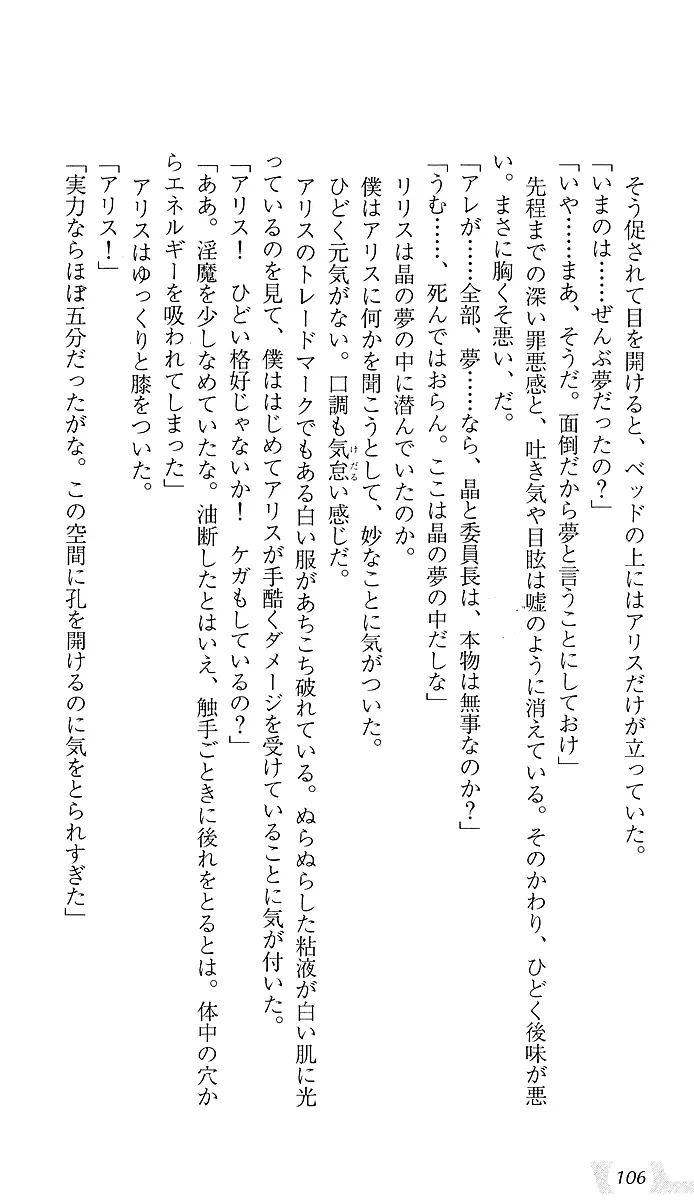 そう促されて目を開けると、ベッドの上にはアリスだけが立っていた。
「いまのは……ぜんぶ夢だったの?」
「いや……まあ、そうだ。面倒だから夢と言うことにしておけ」
先程までの深い罪悪感と、吐き気や目眩は嘘のように消えている。そのかわり、ひどく後味が悪
い。まさに胸くそ悪い、だ。
「アレが……全部、夢……なら、晶と委員長は、本物は無事なのか?」
「うむ……、死んではおらん。ここは晶の夢の中だしな」
リリスは晶の夢の中に潜んでいたのか。
僕はアリスに何かを聞こうとして、妙なことに気がついた。
ひどく元気がない。口調も気怠い感じだ。
けだる
アリスのトレードマークでもある白い服があちこち破れている。ぬらぬらした粘液が白い肌に光
っているのを見て、僕ははじめてアリスが手酷くダメージを受けていることに気が付いた。
「アリス! ひどい格好じゃないか! ケガもしているの?」
「ああ。淫魔を少しなめていたな。油断したとはいえ、触手ごときに後れをとるとは。体中の穴か
らエネルギーを吸われてしまった」
アリスはゆっくりと膝をついた。
「アリス!」
「実力ならほぼ五分だったがな。この空間に孔を開けるのに気をとられすぎた」
106